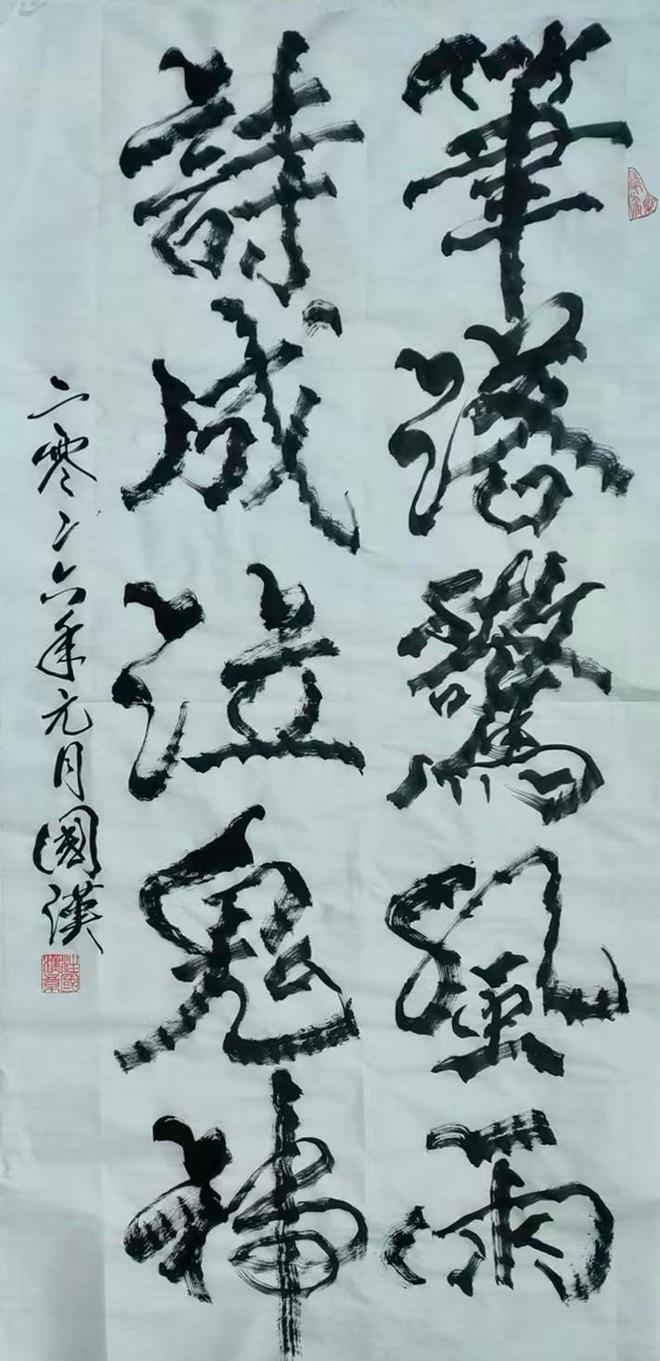 筆落驚風雨
詩成泣鬼神
二零二六年元月國漢